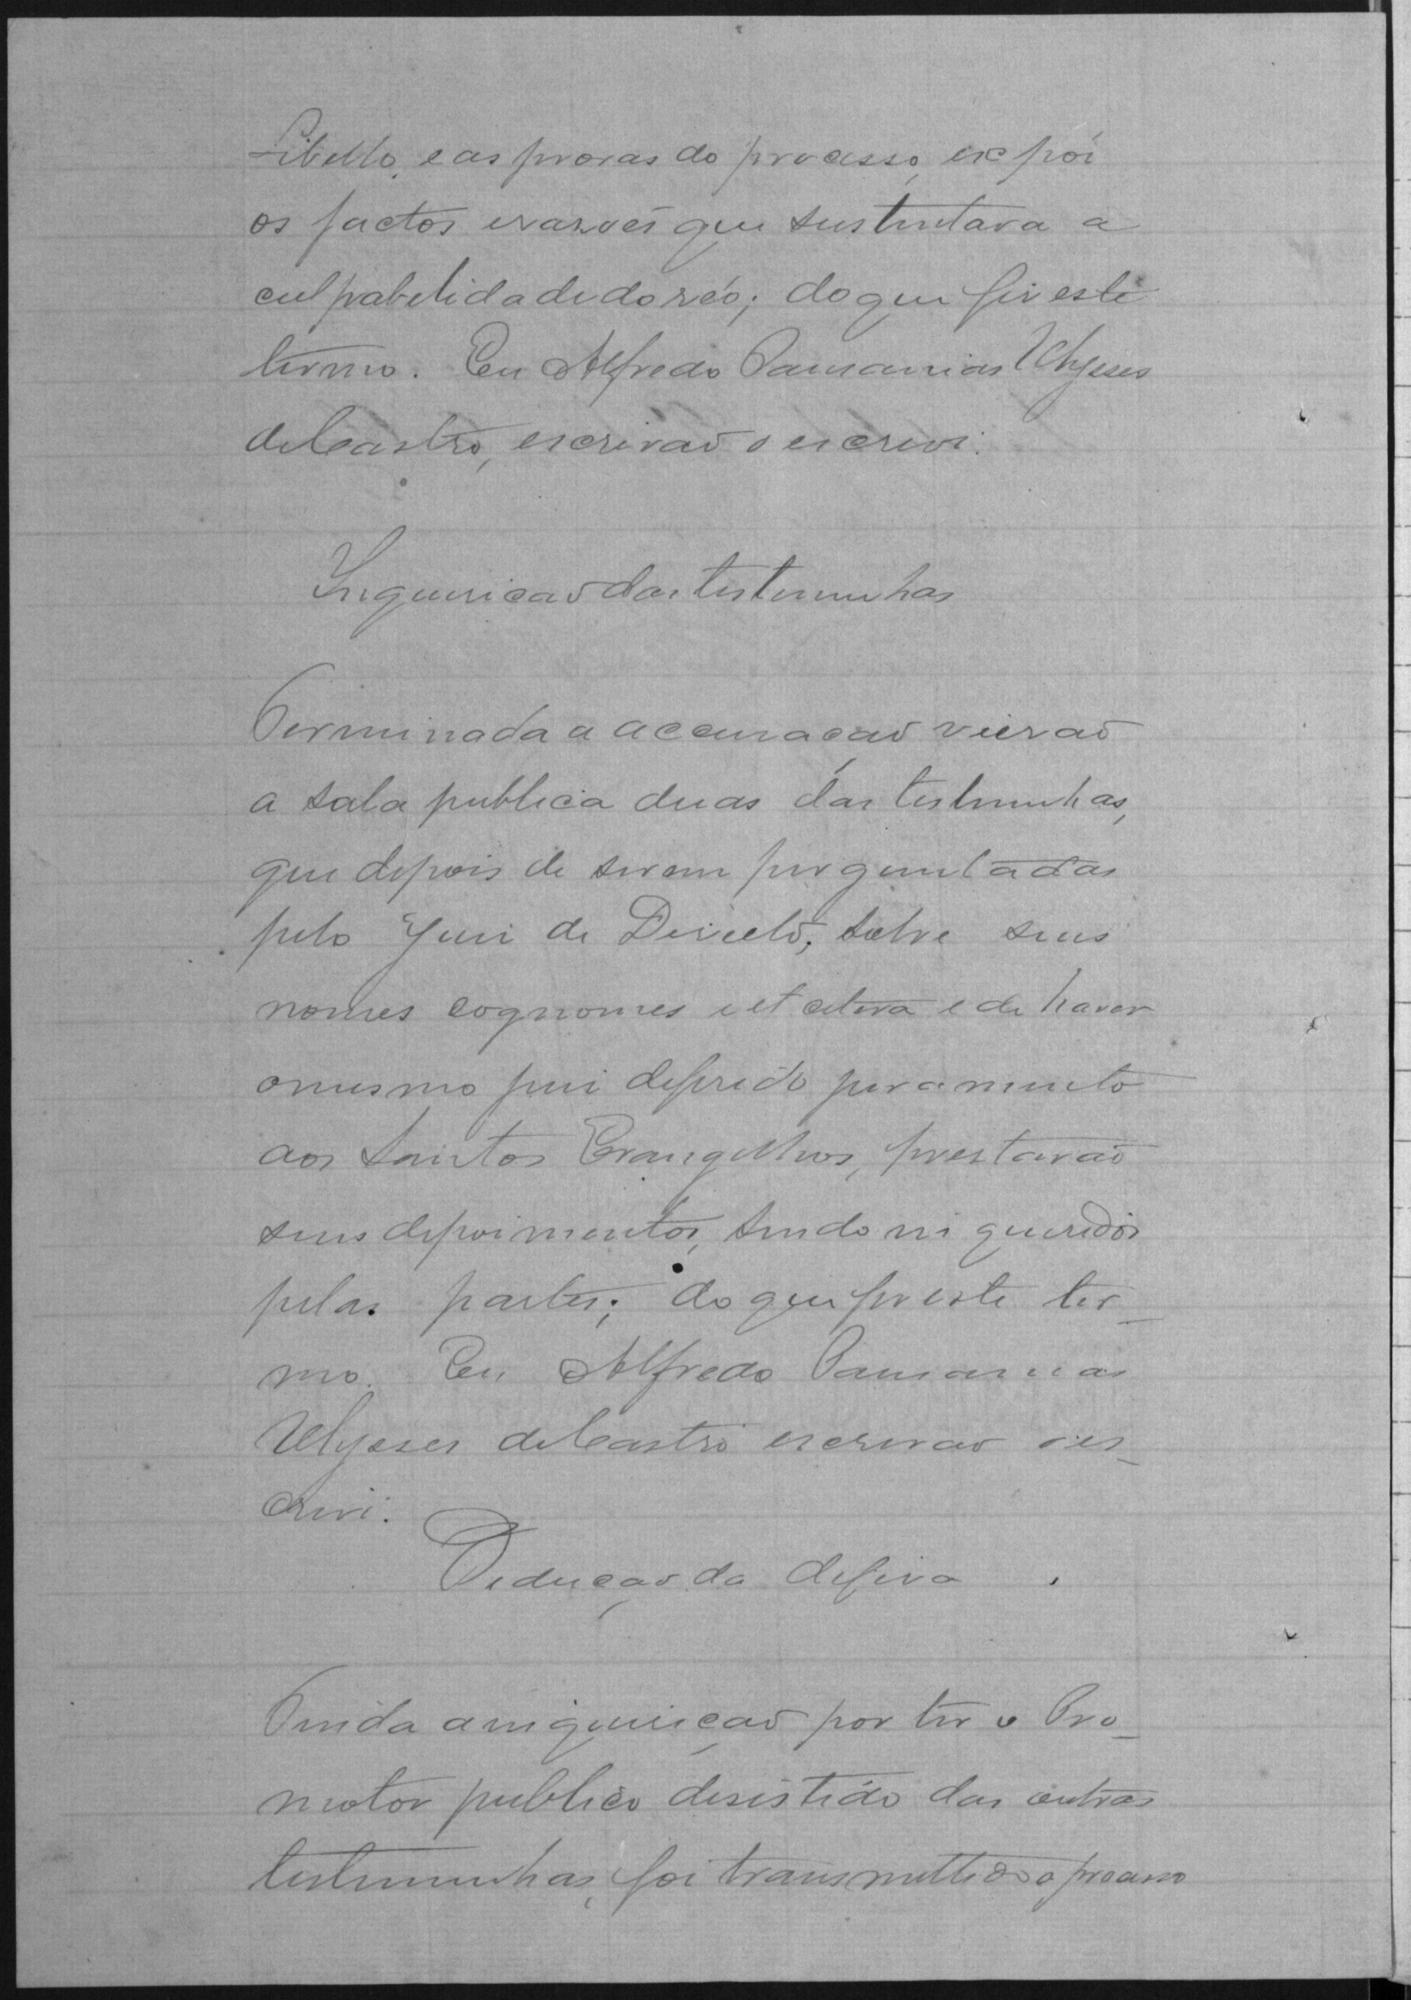 Libello, e as provas do processo, expôs
os factos e razões que sustentava a
culpabelidade do réo; do que fiz este
termo. Eu Alfredo Pausanias Ulysses
de Castro, escrivaõ o escrevi.
Inquiriçaõ das testemunhas
Terminada a accusaçaõ vieraõ
a sala publica duas das testemunhas,
que depois de serem perguntadas
pelo Juiz de Direito, sobre seus
nomes cognomes e et cetera e de haver
o mesmo juiz deferido juramento
aos Santos Evangelhos, prestaraõ
seus depoimentos, sendo inqueridos
pelas partes; do que fiz este ter-
mo. Eu Alfredo Pausanias
Ulysses de Castro escrivaõ o es-
crevi.
Deducçaõ da defesa.
Finda a inquiriçaõ por ter o Pro-
motor publico desistido das outras
testemunhas, foi transmettido o processo